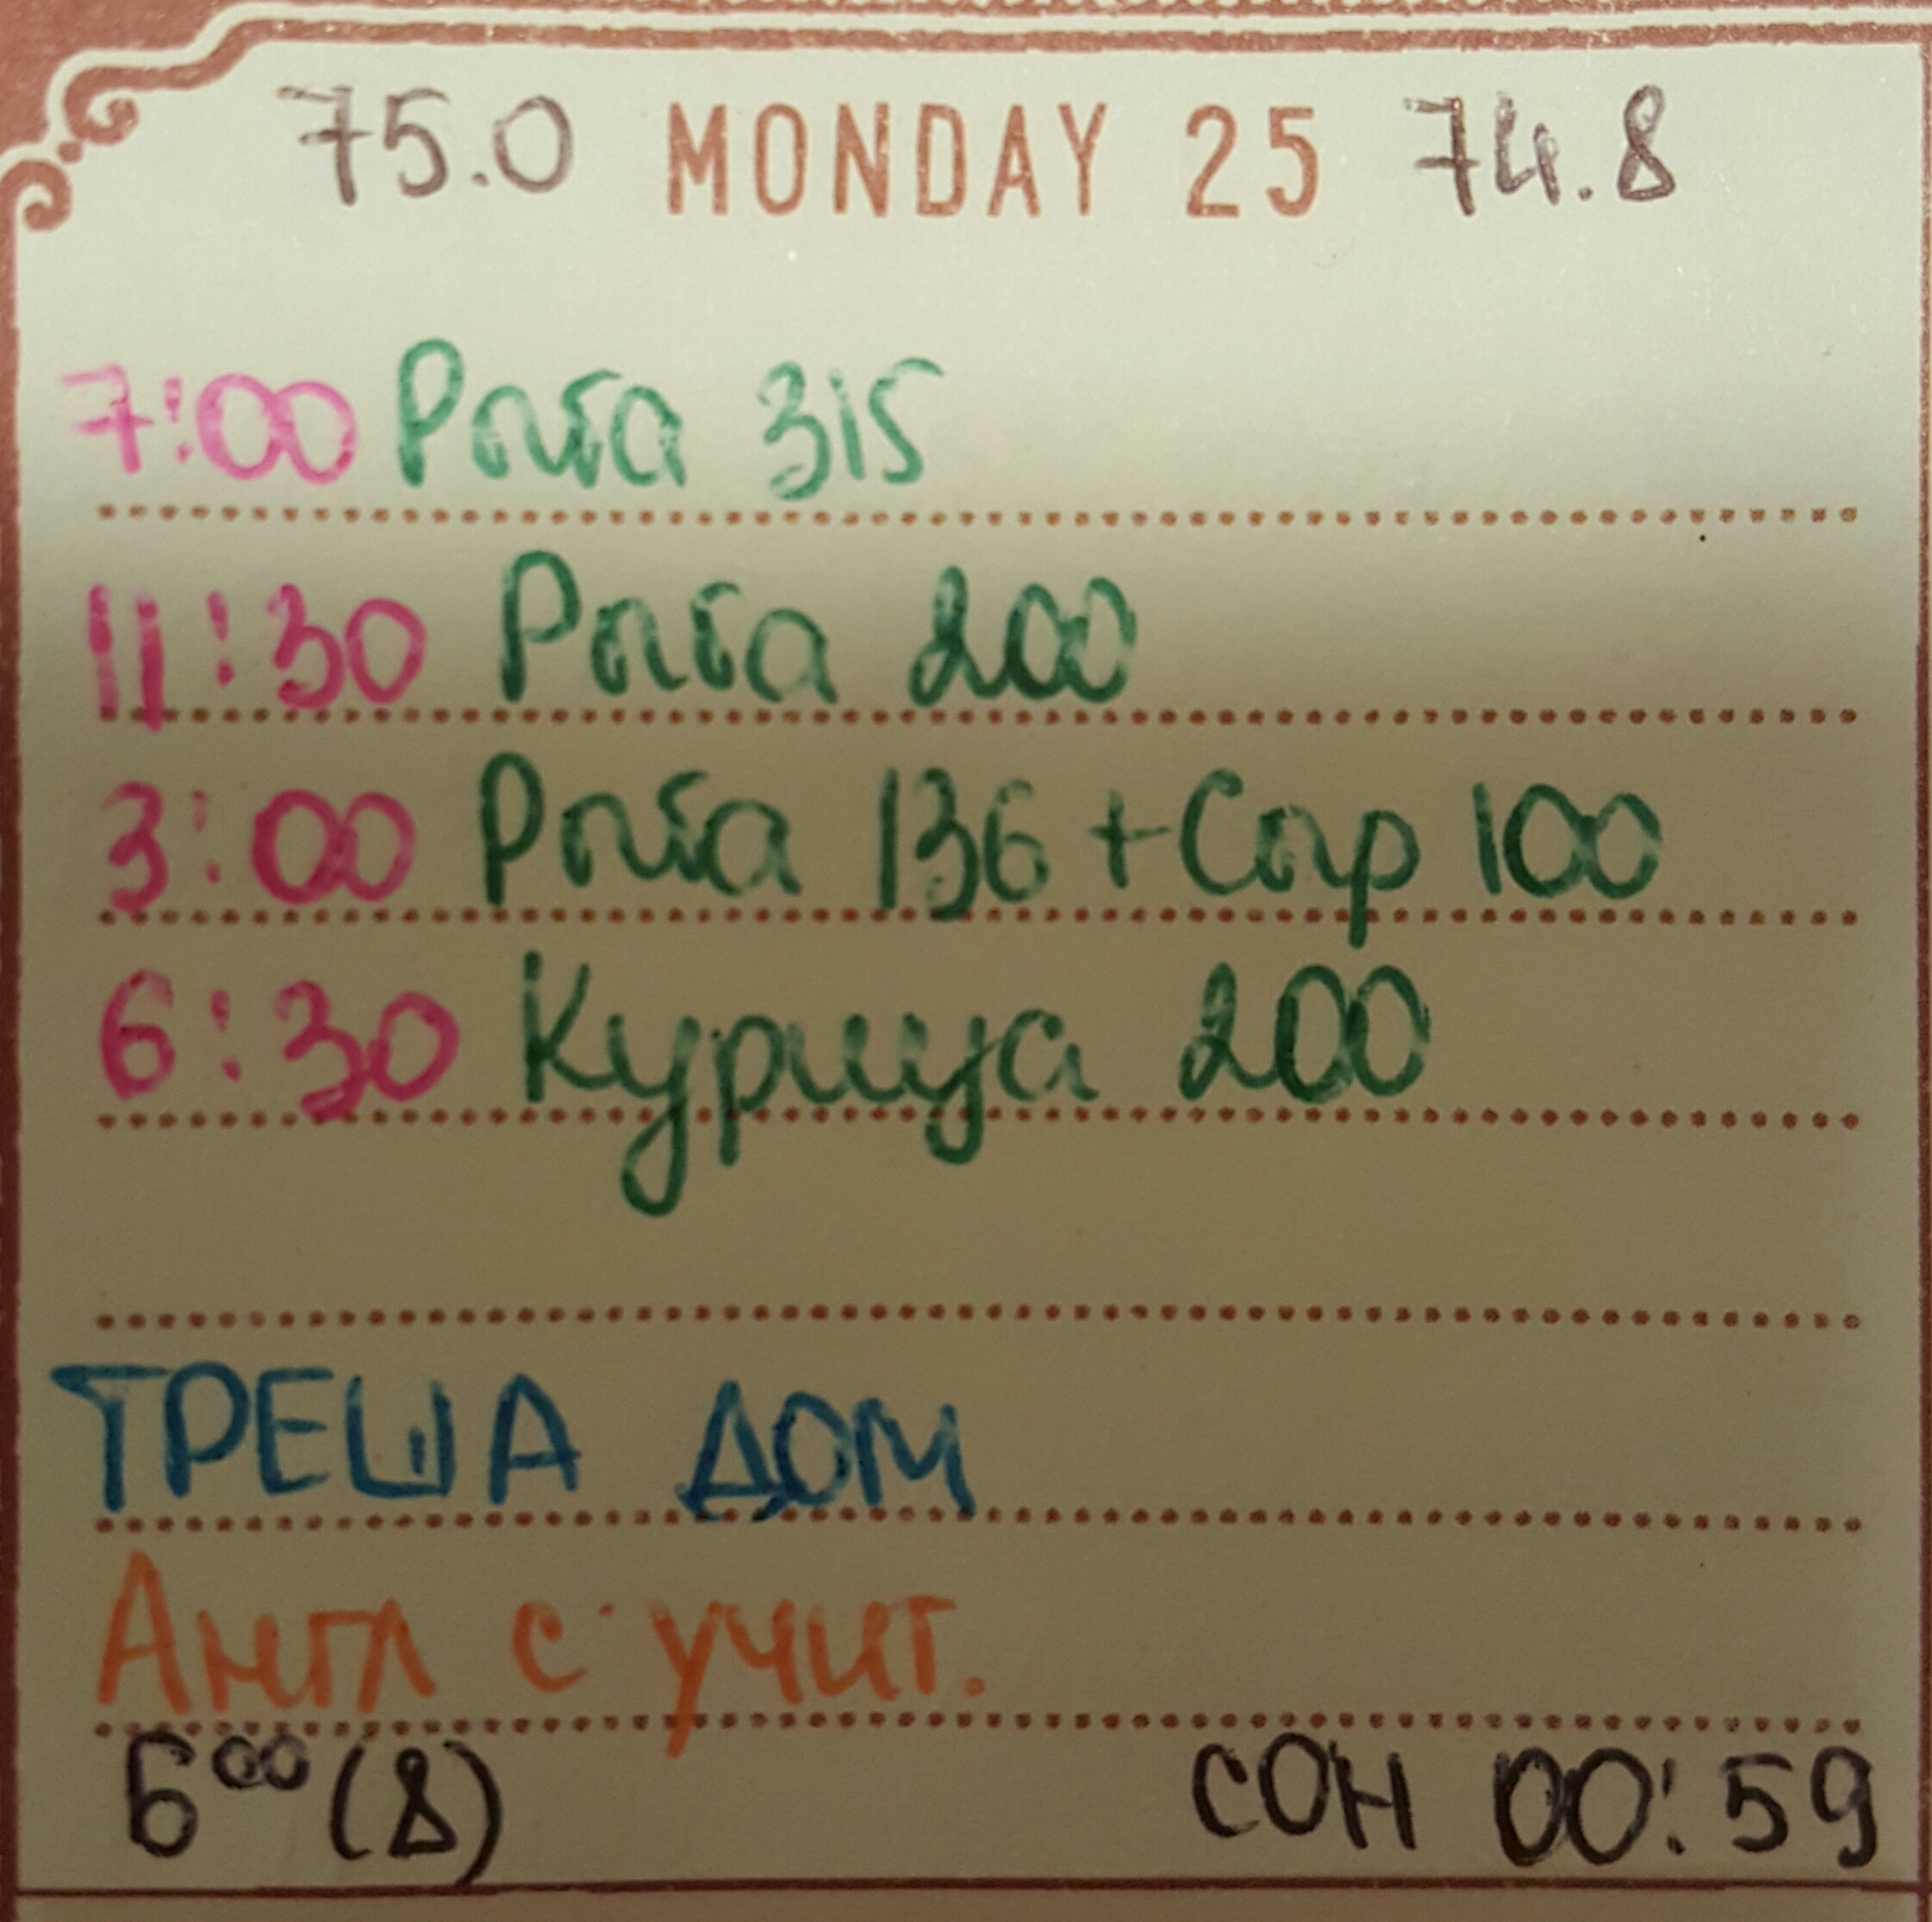 75.0 MONDAY 25 74.8
7:00 Рыба 315
11:30 Рыба 200
3:00 Рыба 136 + Сыр 100
6:30 Курица 200
ТРЕША ДОМ
Англ с учит.
6⁰⁰ (8) СОН 00:59